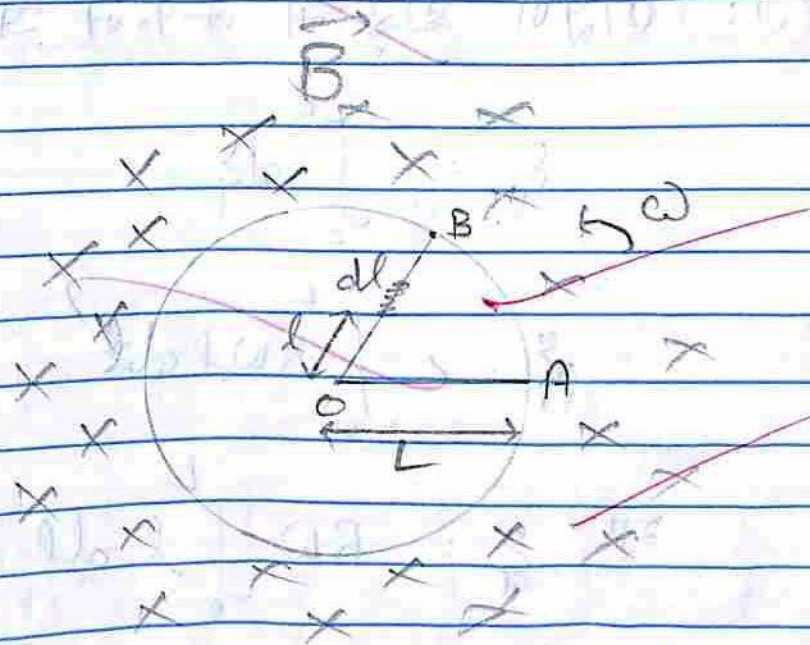 B
B
ω
dl
l
O
A
L